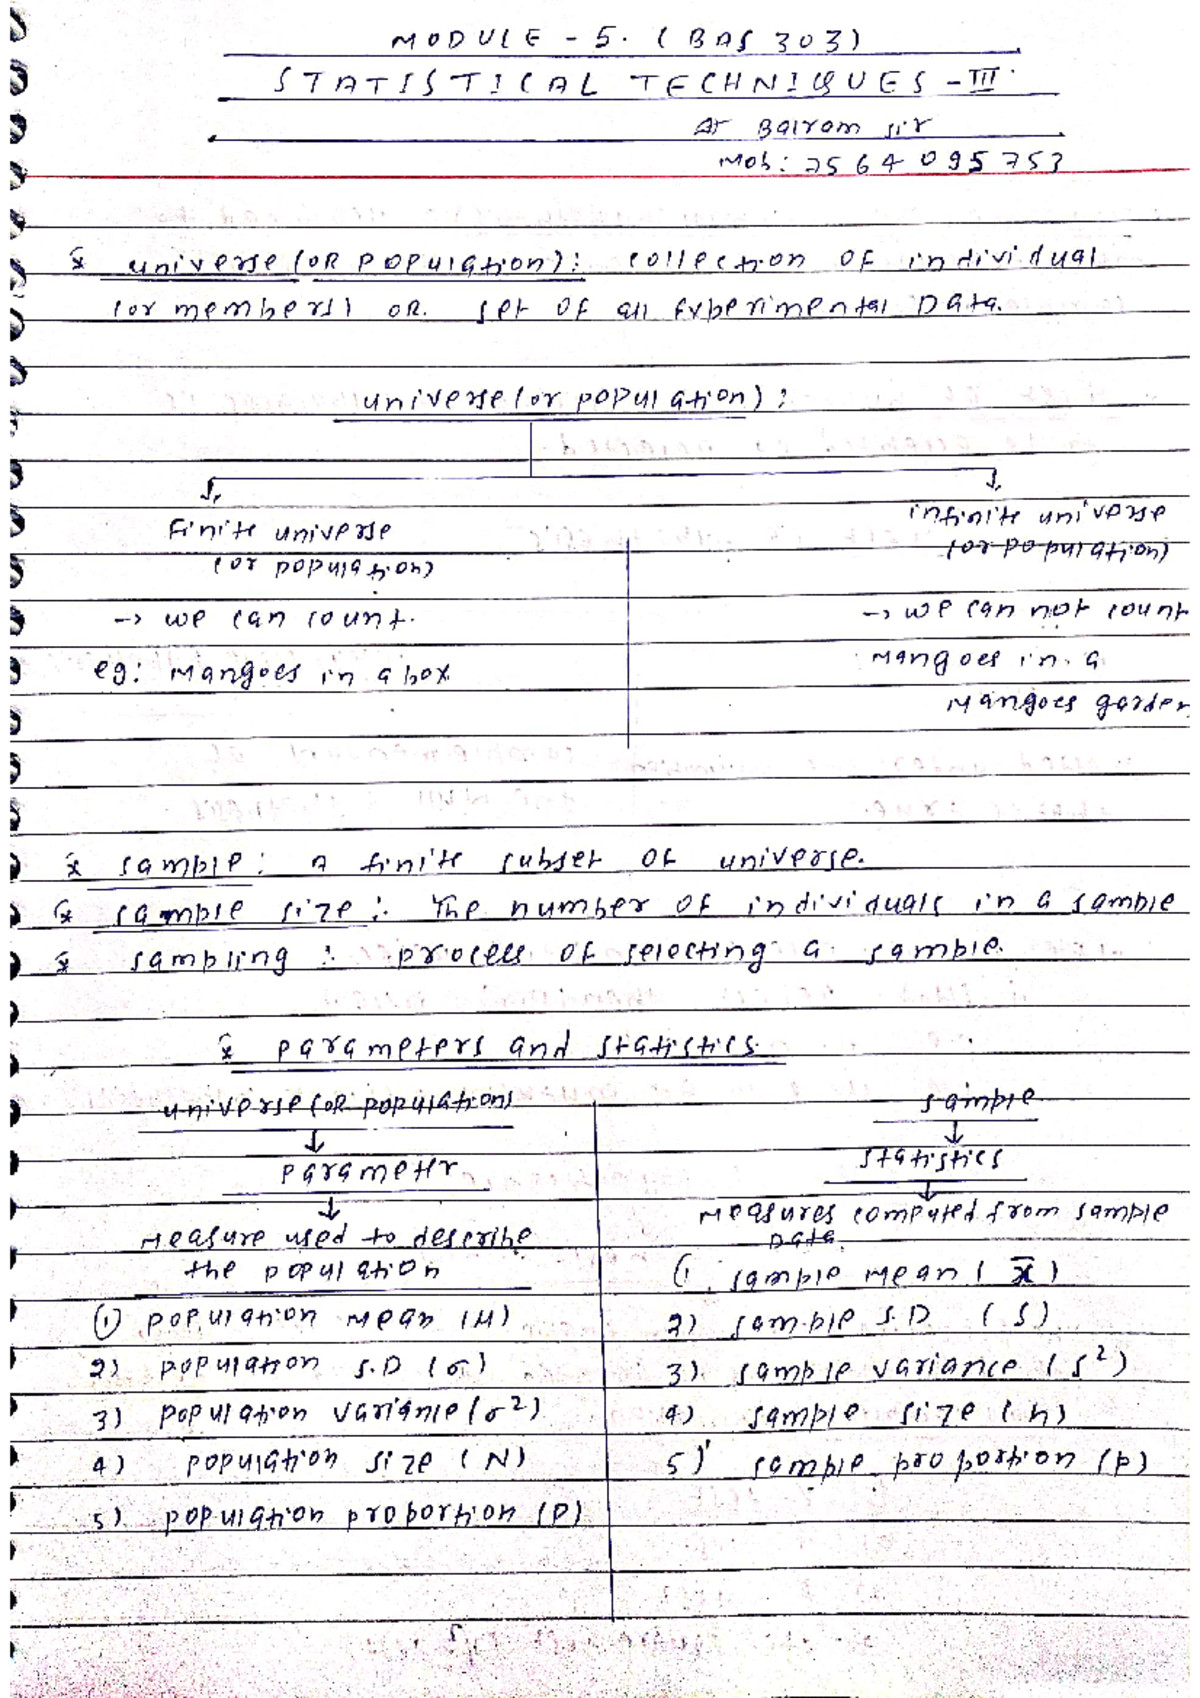 MODULE - 5. (BAS 303)
STATISTICAL TECHNIQUES - III
Ar Balram sir
Mob: 7564095753
* universe (OR population): collection of individual
(or members) OR. set of all Experimental Data.
universe (or population):
Finite universe
(or population)
-> we can count.
eg: Mangoes in a box
infinite universe
(or population)
-> we can not count
Mangoes in a
Mangoes garden
* sample: A finite subset of universe.
* sample size: The number of individuals in a sample
* sampling: process of selecting a sample.
* parameters and statistics
universe (or population)
parameter
Measure used to describe
the population
① population Mean (μ)
2) population S.D (σ)
3) population variance (σ²)
4) population size (N)
5) population proportion (P)
sample
statistics
Measures computed from sample
Data
(1. sample Mean ( x̄ )
2) sample S.D (S)
3). sample variance (s²)
4) sample size (n)
5) sample proportion (p)